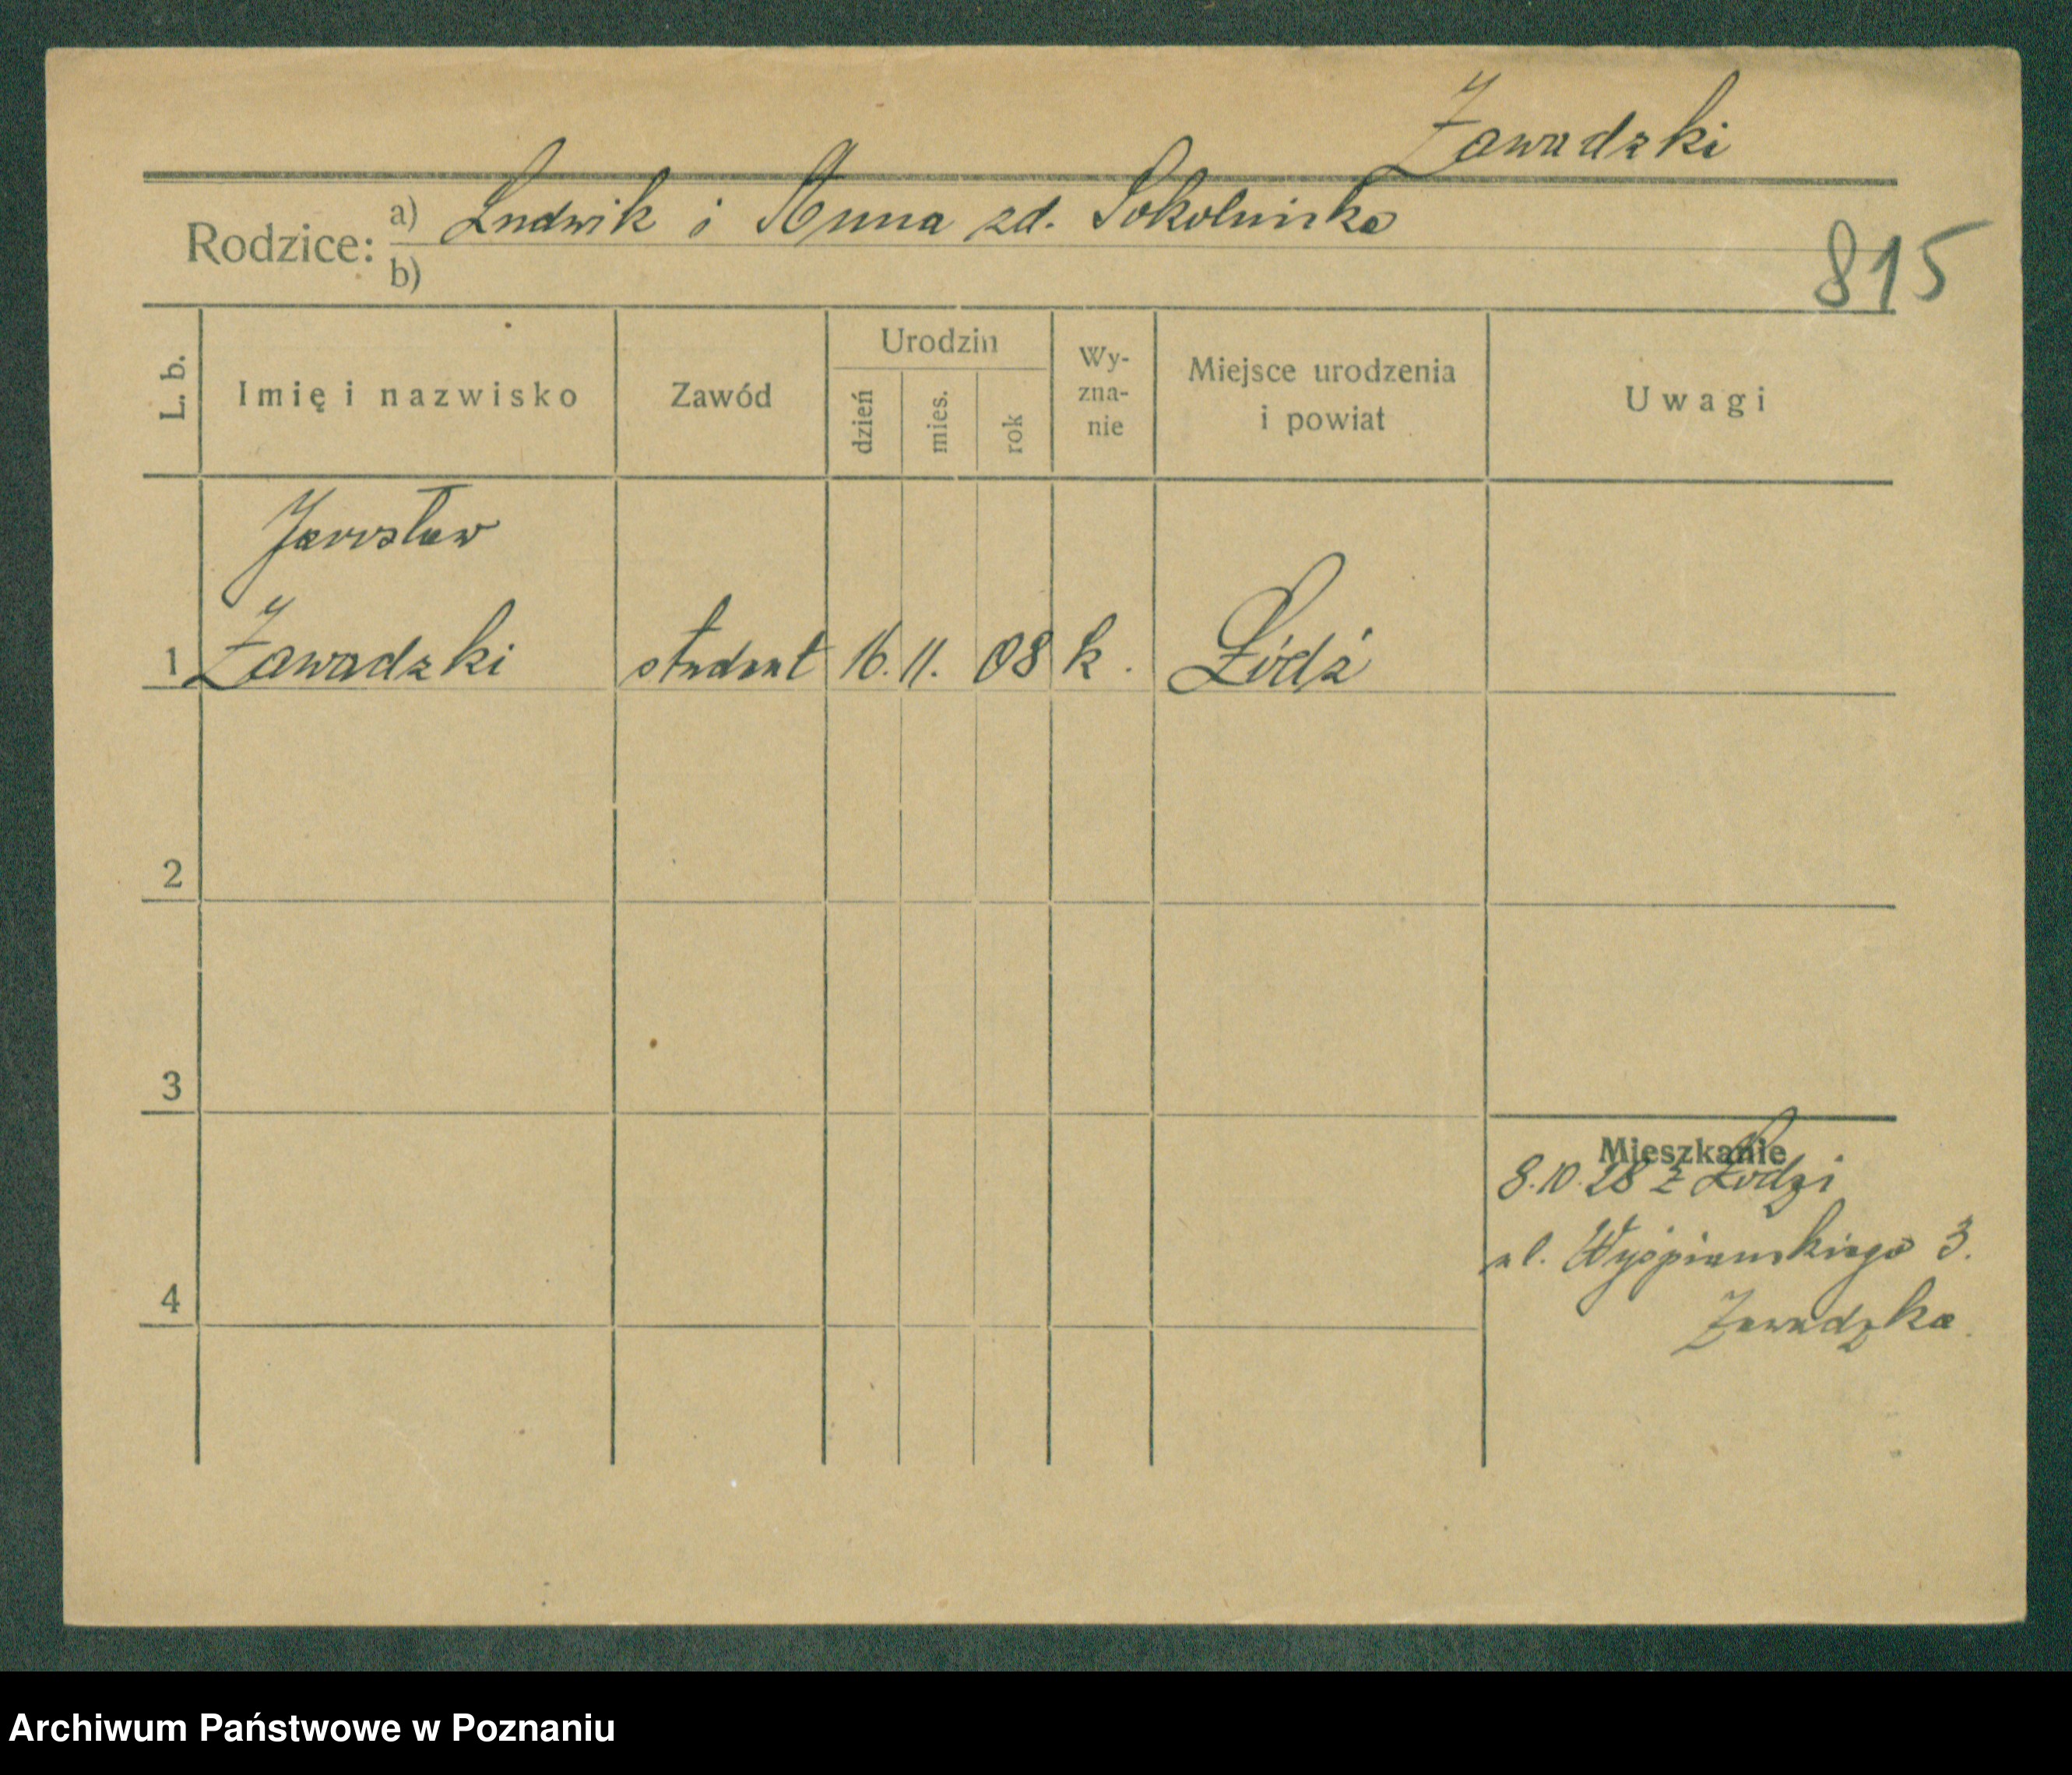 Zawadzki
Rodzice: a) Ludwik i Anna zd. Sokolnicka
b)
815
L. b. Imię i nazwisko Zawód Urodzin dzień mies. rok Wy-zna-nie Miejsce urodzenia i powiat Uwagi
Jarosław
1 Zawadzki student 16. 11. 08 k. Łódź
2
3
Mieszkanie
8.10.28 z Łodzi
ul. Wyspianskiego 3.
4
Zawadzka
Archiwum Państwowe w Poznaniu